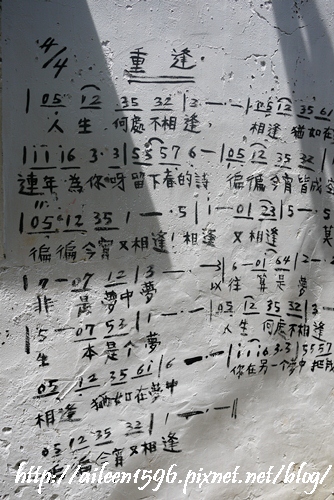 4/4 重逢
| 05 12 35 32 | 3 - - | 05 12 35 61
人生何處不相逢, 相逢猶如在
| i i i 16 3·3 | 5 5 5 7 6 - | 05 12 35 32
連年為你呀留下春的詩 徧徧今宵皆成
| 05 12 35 1 - ·5 | i - 01 23 | 5 - ·5
徧徧今宵又相逢! 相逢 又相逢
| 7 - ·07 12 | 3 - - ·3 | 6 - 01 64 | 2 - ·2
非 是 夢中 夢 以往 算是 夢
| 5 - 07 53 | 1 - - | 05 12 35 32 | 3
生 本是個夢 人生何處不相逢
05 12 35 61 | 6 - · - | i i i 6 3·3 | 5 5 5 7
相逢 猶如在夢中 你在另一個夢中把
05 12 35 32 | 1 - - - ||
今宵又相逢
http://aileen1596.pixnet.net/blog/